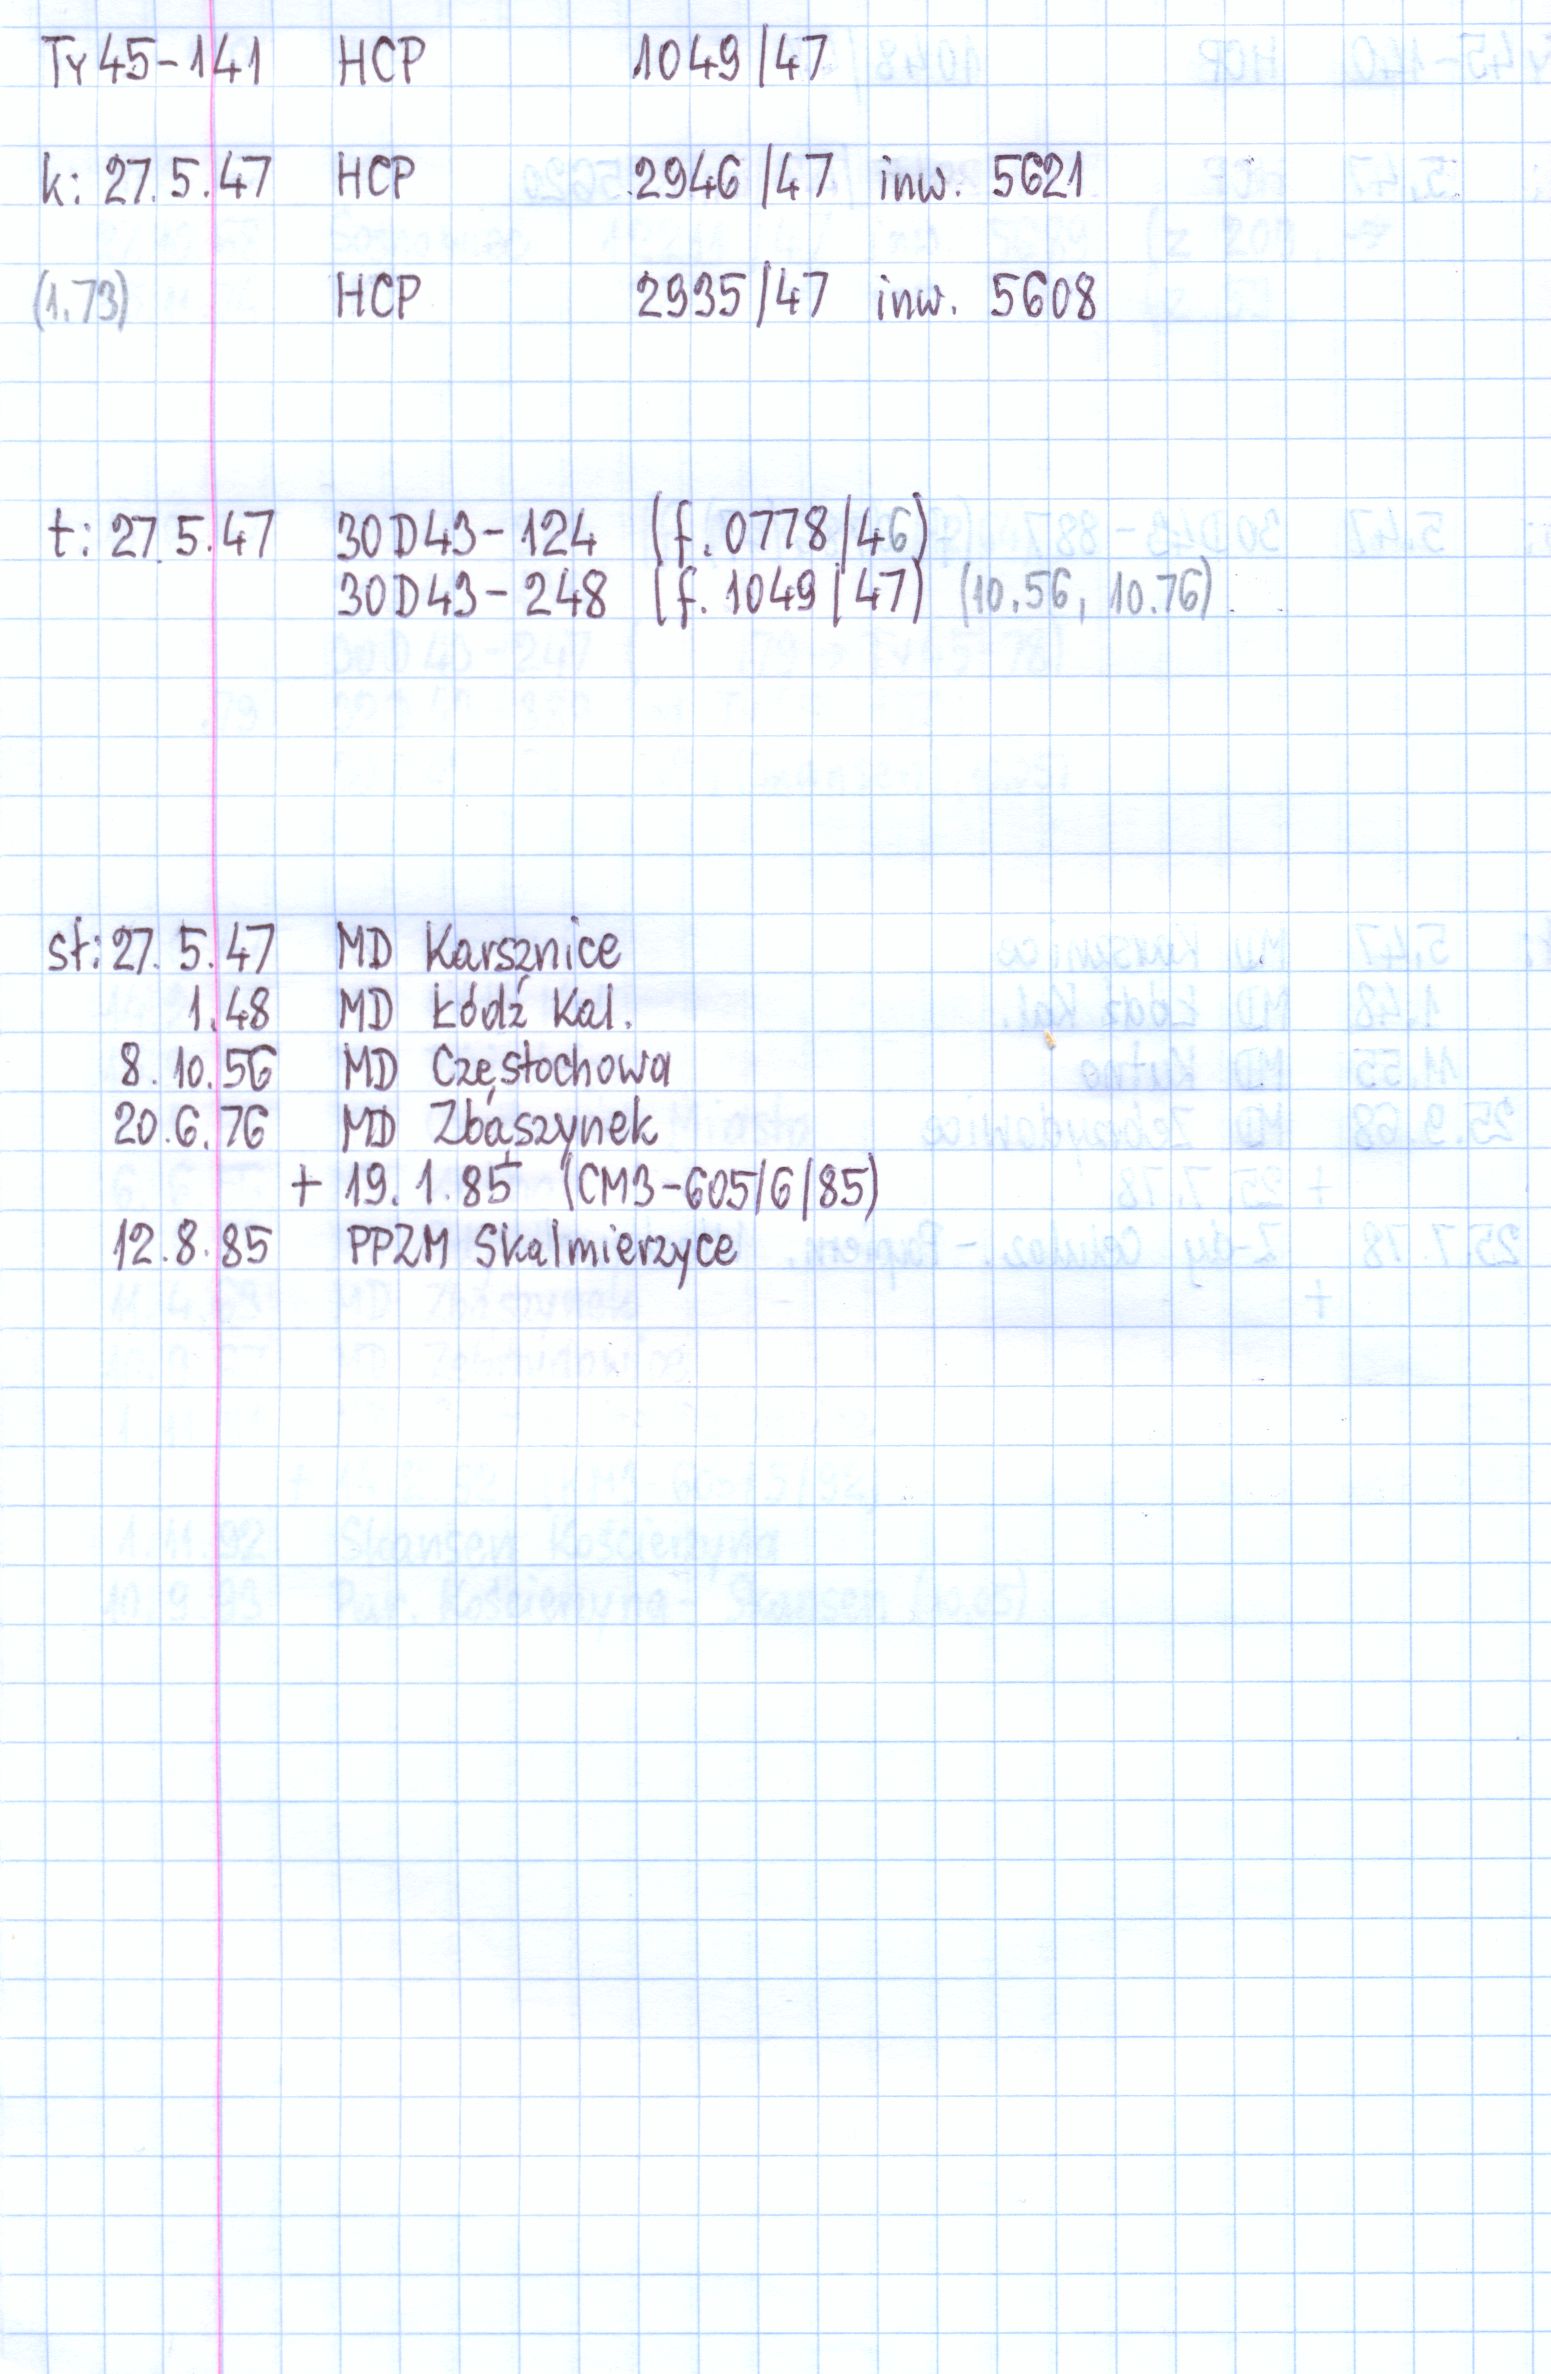 Ty45-141 HCP 1049/47
k: 27.5.47 HCP 2946/47 inw. 5621
(1.73) HCP 2935/47 inw. 5608
t: 27.5.47 30D43-124 (f. 0778/46)
30D43-248 (f. 1049/47) (10.56, 10.76)
st: 27.5.47 MD Karsznice
1.48 MD Łódź Kal.
8.10.56 MD Częstochowa
20.6.76 MD Zbąszynek
+ 19.1.85 (CM3-605/6/85)
12.8.85 PPZM Skalmierzyce